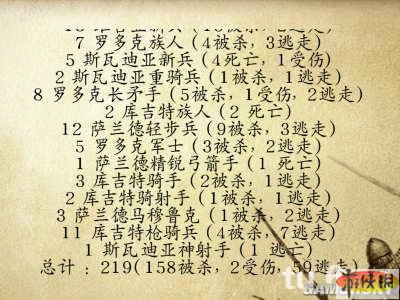 7 罗多克族人（4被杀，3逃走）
5 斯瓦迪亚新兵（4死亡，1受伤）
2 斯瓦迪亚重骑兵（1被杀，1逃走）
8 罗多克长矛手（5被杀，1受伤，2逃走）
2 库吉特族人（2 死亡）
12 萨兰德轻步兵（9被杀，3逃走）
5 罗多克军士（3被杀，2逃走）
1 萨兰德精锐弓箭手（1 死亡）
3 库吉特骑手（2被杀，1逃走）
2 库吉特骑射手（1被杀，1逃走）
3 萨兰德马穆鲁克（1被杀，2逃走）
11 库吉特枪骑兵（4被杀，7逃走）
1 斯瓦迪亚神射手（1 逃亡）
总计 ：219(158被杀，2受伤，59逃走)
游侠网